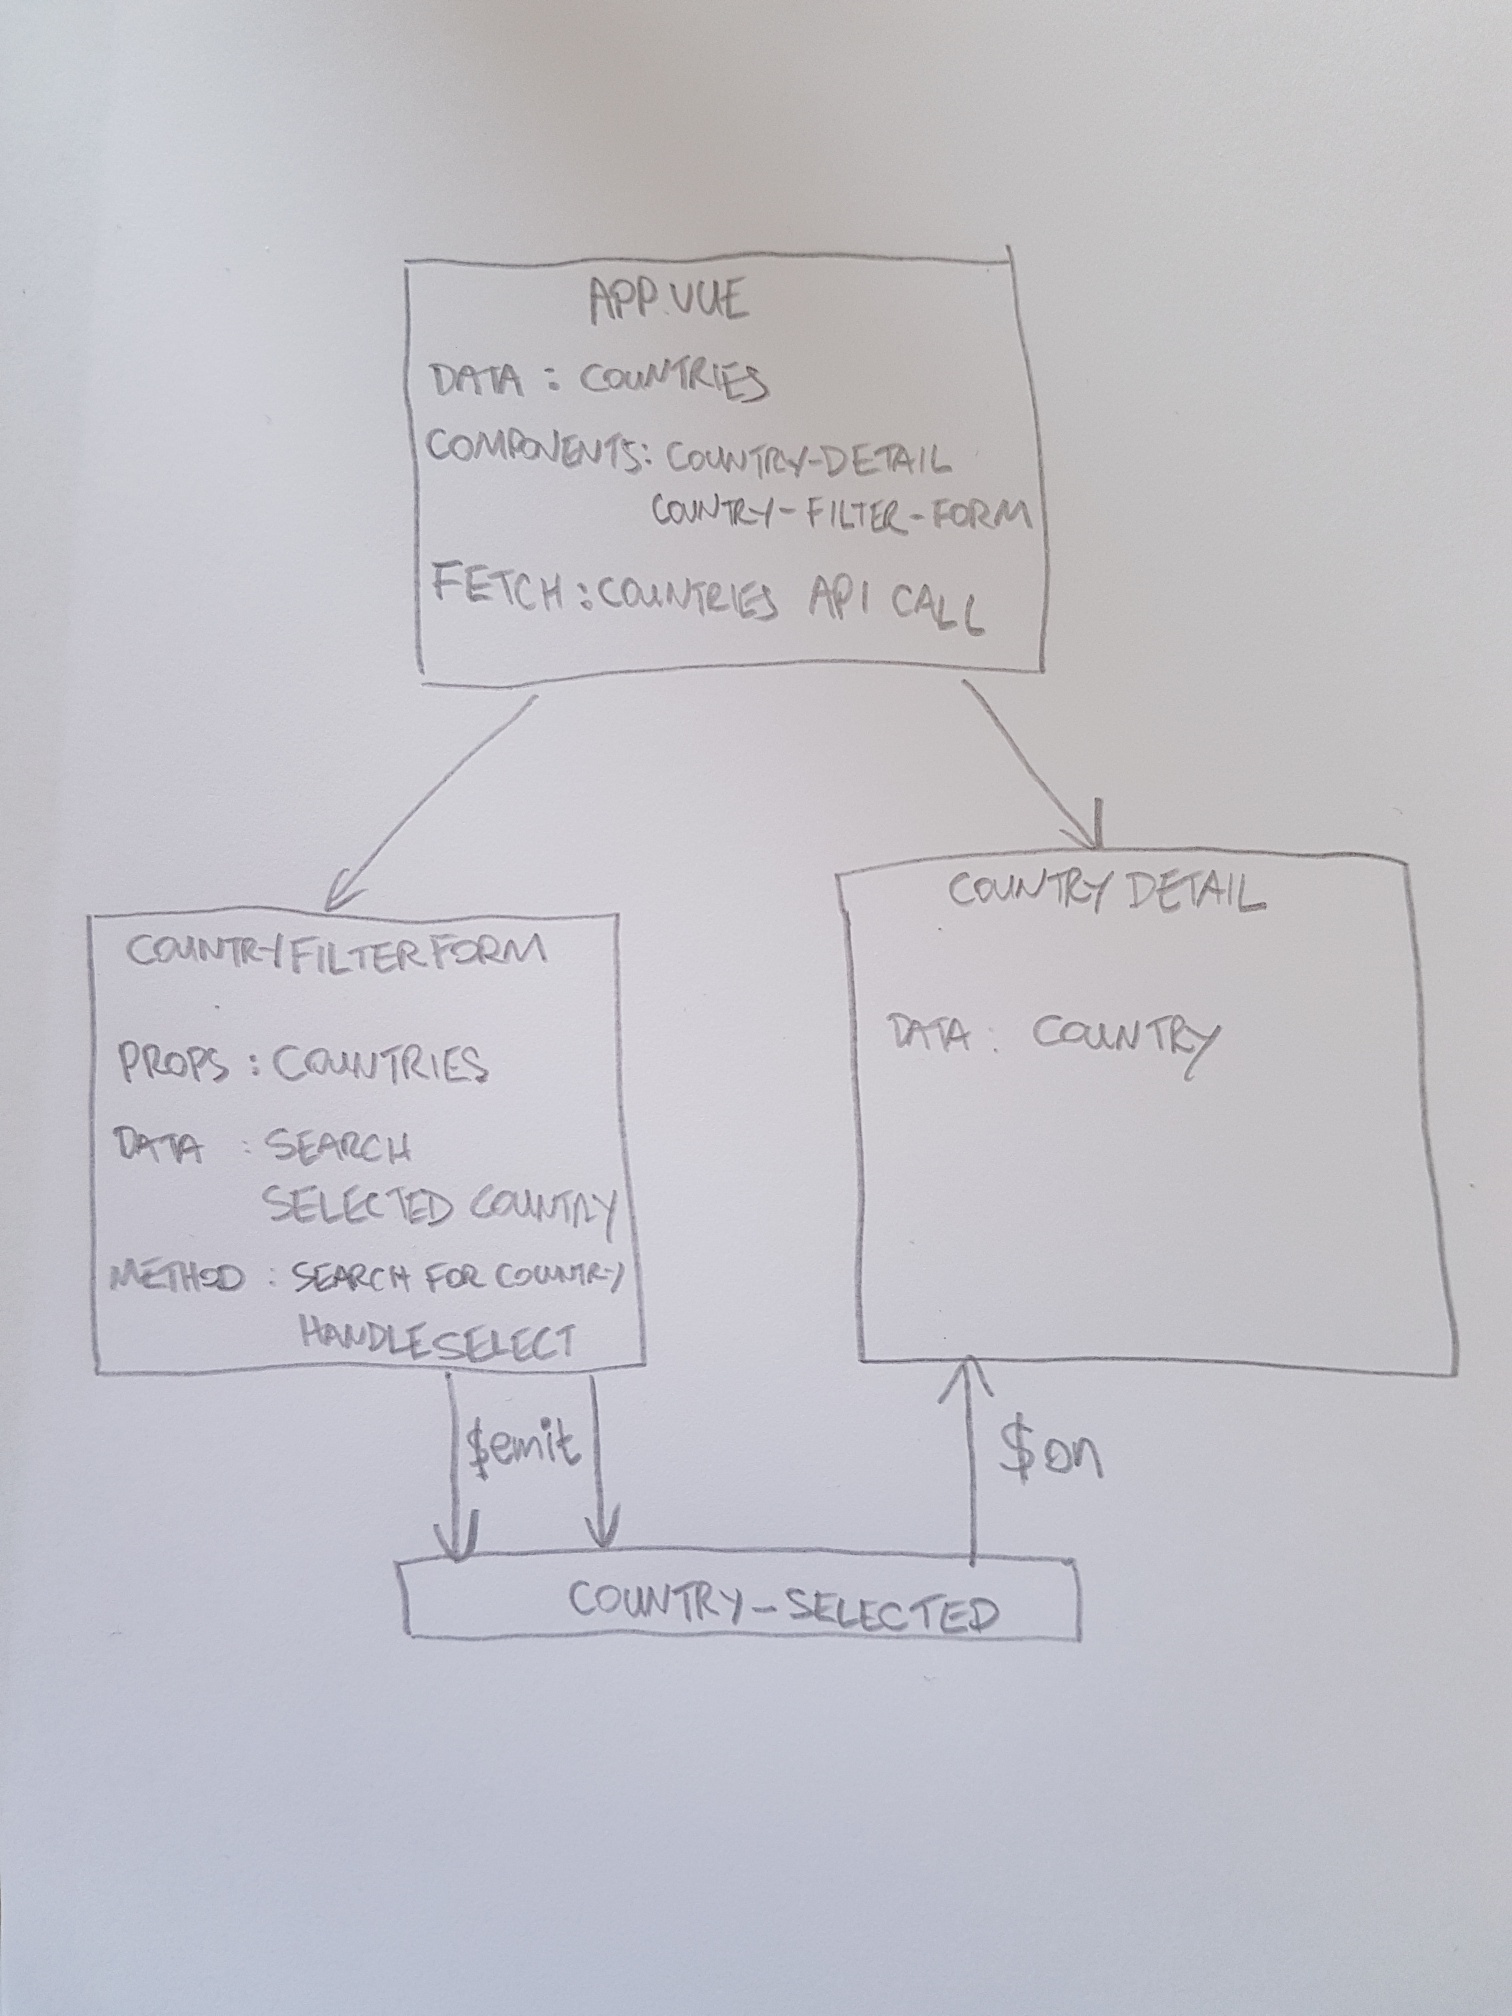 APP.VUE
DATA : COUNTRIES
COMPONENTS: COUNTRY-DETAIL
COUNTRY-FILTER-FORM
FETCH : COUNTRIES API CALL
COUNTRYFILTERFORM
PROPS : COUNTRIES
DATA : SEARCH
SELECTED COUNTRY
METHOD : SEARCH FOR COUNTRY
HANDLESELECT
COUNTRY DETAIL
DATA : COUNTRY
$emit
$on
COUNTRY-SELECTED